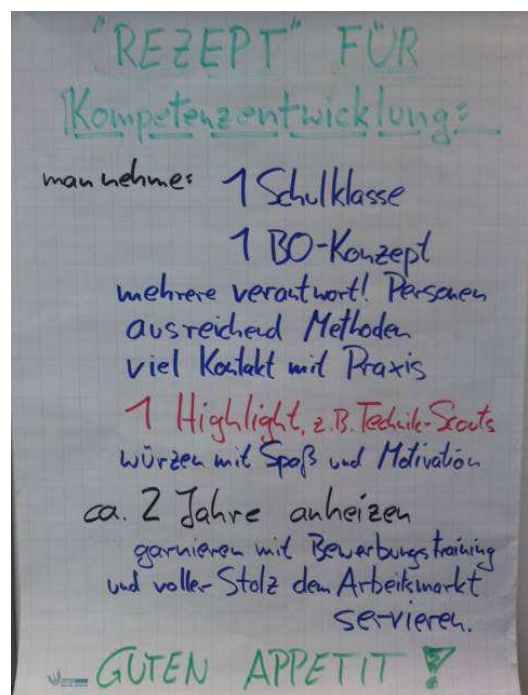 "REZEPT" FÜR
Kompetenzentwicklung:
man nehme: 1 Schulklasse
1 BO-Konzept
mehrere verantwortl. Personen
ausreichend Methoden
viel Kontakt mit Praxis
1 Highlight, z.B. Technik-Scouts
würzen mit Spaß und Motivation
ca. 2 Jahre anheizen
garnieren mit Bewerbungstraining
und voller Stolz dem Arbeitsmarkt
servieren.
GUTEN APPETIT!